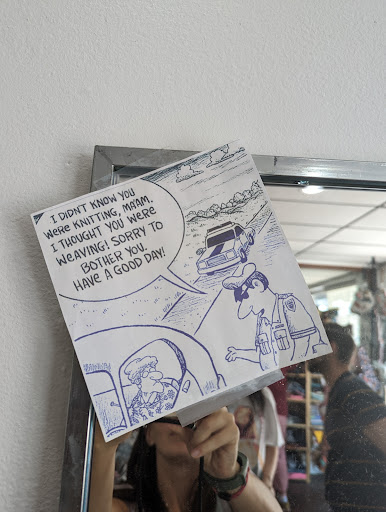 I DIDN'T KNOW YOU
WERE KNITTING, MA'AM.
I THOUGHT YOU WERE
WEAVING! SORRY TO
BOTHER YOU.
HAVE A GOOD DAY!